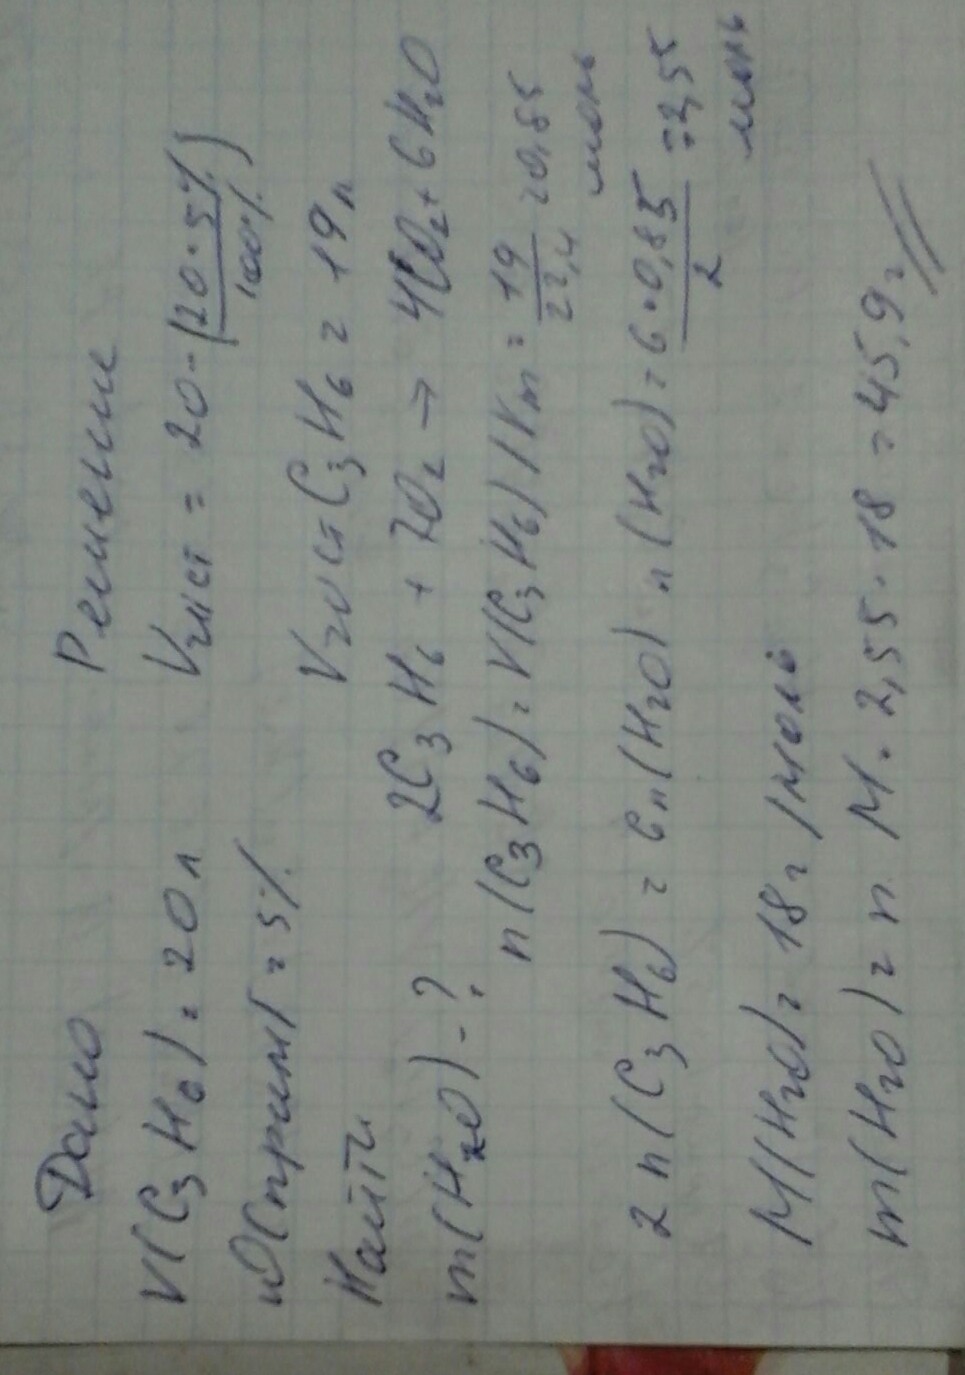 Дано
V(C₃H₆) = 20 л
ω(прим) = 5%
Найти
m(H₂O) - ?
Решение
Vчист = 20 - (20 · 5% / 100%)
Vчист C₃H₆ = 19 л
2C₃H₆ + 7O₂ → 4CO₂ + 6H₂O
n(C₃H₆) = V(C₃H₆) / Vm = 19 / 22,4 = 0,85 моль
2n(C₃H₆) = 6n(H₂O) n(H₂O) = 6 · 0,85 / 2 = 2,55 моль
M(H₂O) = 18 г/моль
m(H₂O) = n M · 2,55 · 18 = 45,9 г